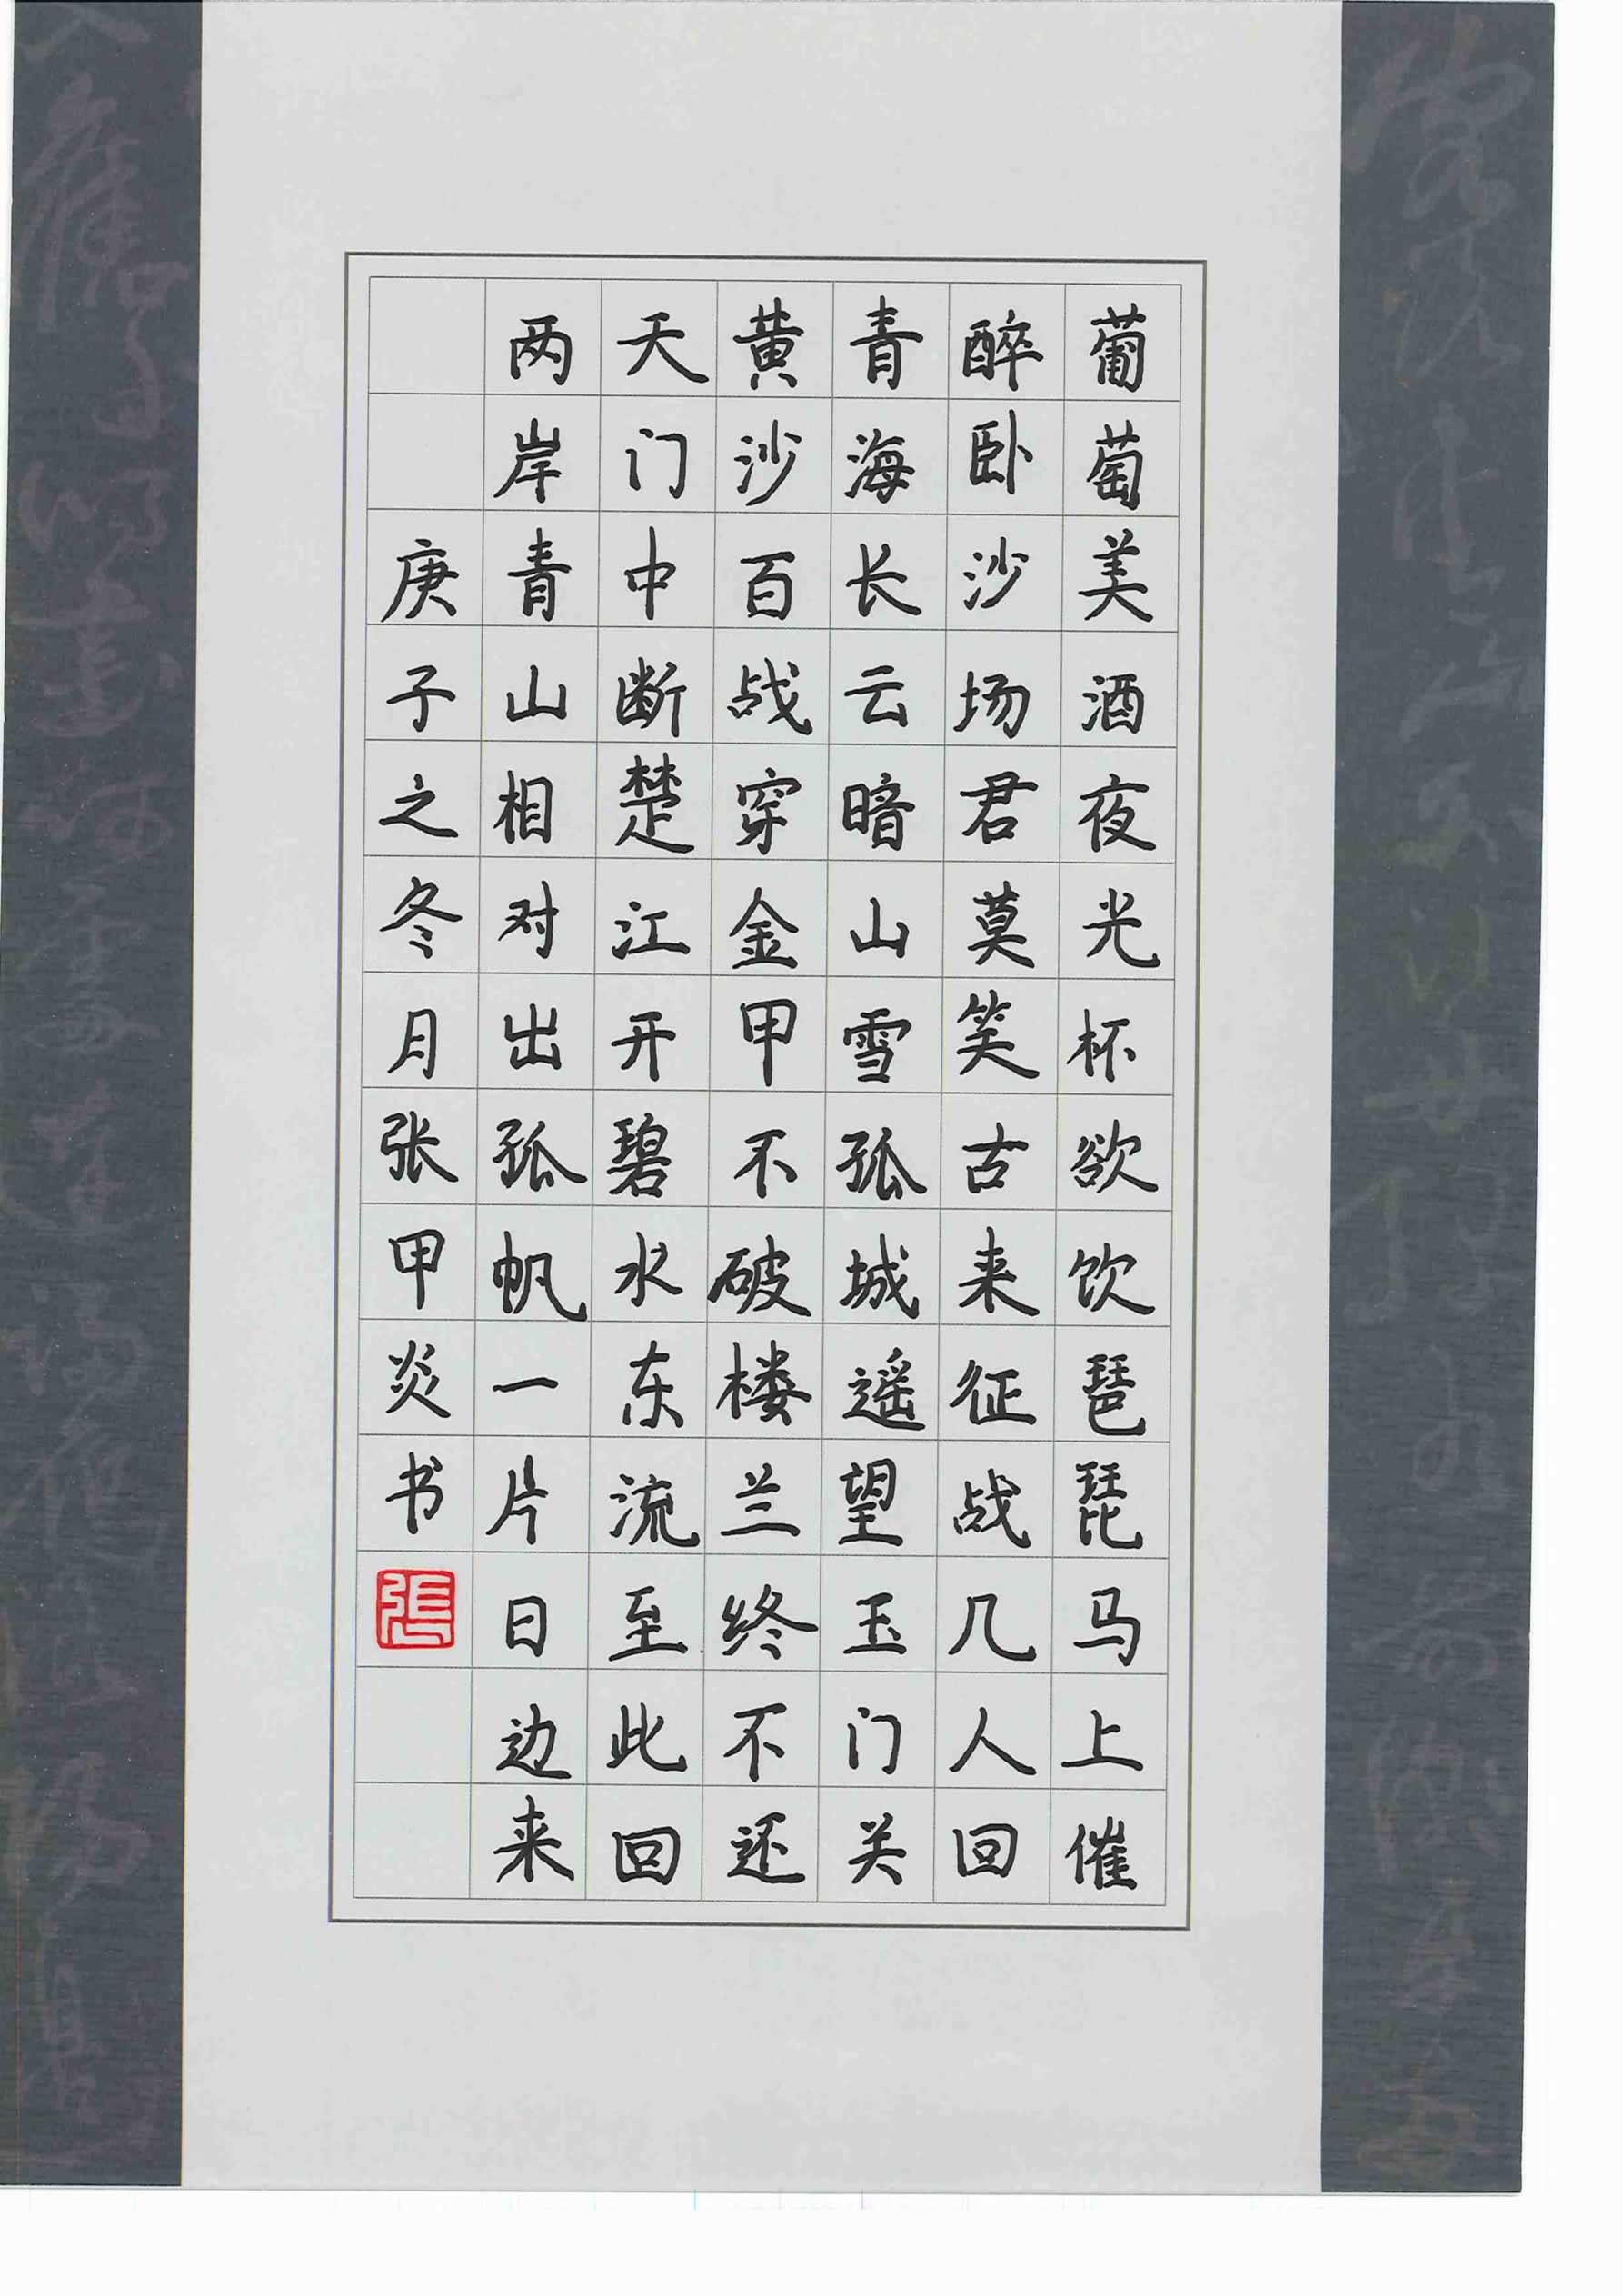 葡萄美酒夜光杯欲饮琶琵马上催
醉卧沙场君莫笑古来征战几人回
青海长云暗山雪孤城遥望玉门关
黄沙百战穿金甲不破楼兰终不还
天门中断楚江开碧水东流至此回
两岸青山相对出孤帆一片日边来
庚子之冬月张甲炎书
張